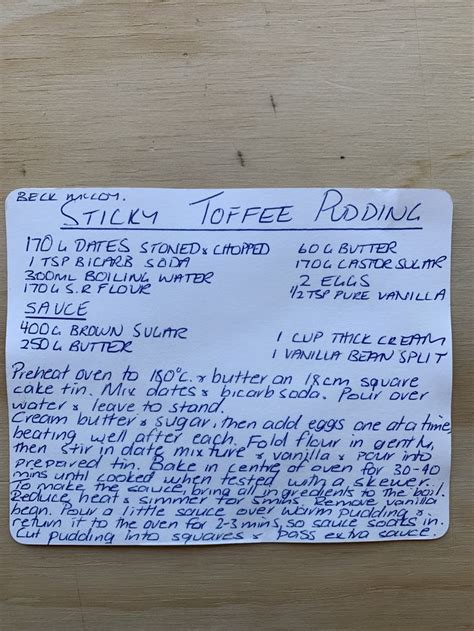 BECK McCLOY.
STICKY TOFFEE PUDDING
170G DATES STONED & CHOPPED
1 TSP BICARB SODA
300ML BOILING WATER
170G S.R FLOUR
60G BUTTER
170G CASTOR SUGAR
2 EGGS
1/2 TSP PURE VANILLA
SAUCE
400G BROWN SUGAR
250G BUTTER
1 CUP THICK CREAM
1 VANILLA BEAN SPLIT
Preheat oven to 180°c. & butter an 18cm square
cake tin. Mix dates & bicarb soda. Pour over
water & leave to stand.
Cream butter & sugar, then add eggs one at a time,
beating well after each. Fold flour in gently,
then stir in date mixture & vanilla & pour into
prepared tin. Bake in centre of oven for 30-40
mins until cooked when tested with a skewer.
To make the sauce, bring all ingredients to the boil.
Reduce heat & simmer for 5mins. Remove vanilla
bean. Pour a little sauce over warm pudding &
return it to the oven for 2-3 mins, so sauce soaks in.
Cut pudding into squares & pass extra sauce.